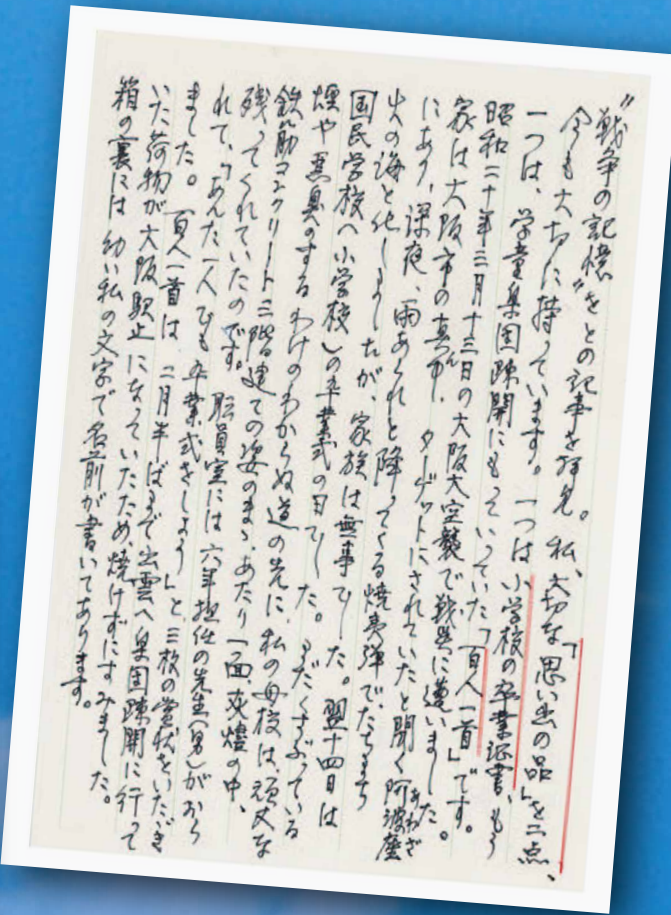 “戦争の記憶”をとの記事を拝見。私、大切な「思い出の品」を二点、
今も大切に持っています。一つは小学校の卒業証書、もう
一つは、学童集団疎開にもっていっていた「百人一首」です。
昭和二十年三月十三日の大阪大空襲で戦災に遭いました。
家は大阪市の真ん中、ターゲットにされていたと聞く阿波座
あわざ
にあり、深夜、雨あられと降ってくる焼夷弾で、たちまち
火の海と化しましたが、家族は無事でした。翌十四日は
国民学校(小学校)の卒業式の日でした。まだくすぶっている
煙や悪臭のするわけのわからぬ道の先に、私の母校は、頑丈な
鉄筋コンクリート三階建ての姿のまゝ、あたり一面、灰燼の中、
残ってくれていたのです。職員室には六年担任の先生(男)がおら
れて、「あんた一人でも卒業式をしよう」と三枚の賞状をいただき
ました。百人一首は二月半ばまで出雲へ集団疎開に行って
いた荷物が大阪駅止になっていたため、焼けずにすみました。
箱の裏には幼い私の文字で名前が書いてあります。